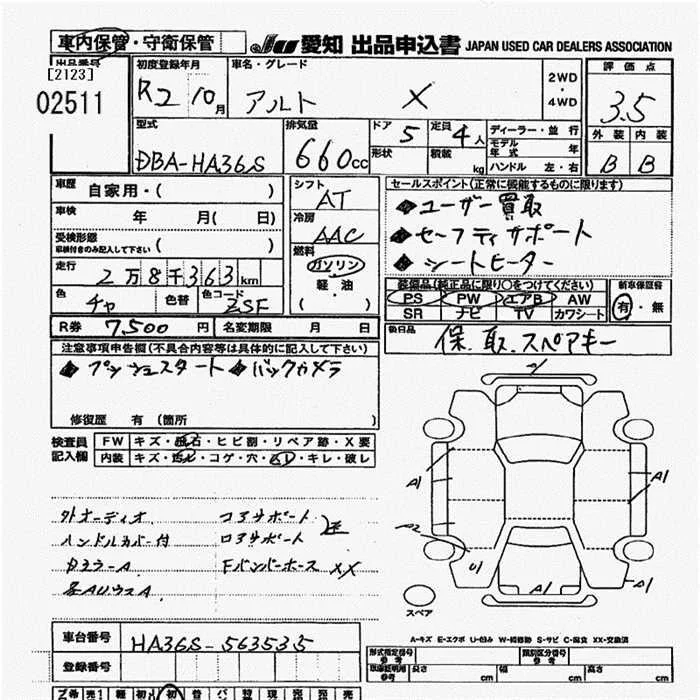 車内保管・守衛保管
JU 愛知 出品申込書 JAPAN USED CAR DEALERS ASSOCIATION
出品番号 初度登録年月 車名・グレード 2WD・4WD 評価点
[2123]
02511 R2 10月 アルト X 3.5
型式 排気量 ドア 5 定員 4人 ディーラー・並行 外装 内装
モデル年式 年
DBA-HA36S 660cc 形状 積載 kg ハンドル 左・右 B B
車歴 自家用・( ) シフト AT セールスポイント(正常に機能するものに限ります)
車検 年 月( 日) 冷房 AAC ◆ユーザー買取
受検形態 ※車検付きのみ記入して下さい ( ) ◆セーフティサポート
燃料 ガソリン・軽・油 ( ) ◆シートヒーター
走行 2万8千363km
装備品(純正品に限り○をつけてください) 新車保証書
色 チャ 色替 色コード ZSF PS PW エアB AW 有・無
SR ナビ TV カワシート
R券 7,500円 名変期限 月 日 後日品 保.取.スペアキー
注意事項申告欄(不具合内容等は具体的に記入して下さい)
◆プッシュスタート ◆バックカメラ
修復歴 有 (箇所 )
検査員記入欄 FW キズ・飛石・ヒビ割・リペア跡・X要
内装 キズ・汚レ・コゲ・穴・スレ・キレ・破レ
A1 A1
A2
U1 A1 A1
外オーディオ コアサポート
ハンドルカバー付 ロアサポート
FバンパーホースXX
スペア
A-キズ E-エクボ U-凹み W-補修跡 S-サビ C-腐食 XX-交換済
車台番号 HA36S-563535
登録番号
形式指定番号 参考 類別区分番号 参考
車庫証明用 参考 長さ cm 幅 cm 高さ cm